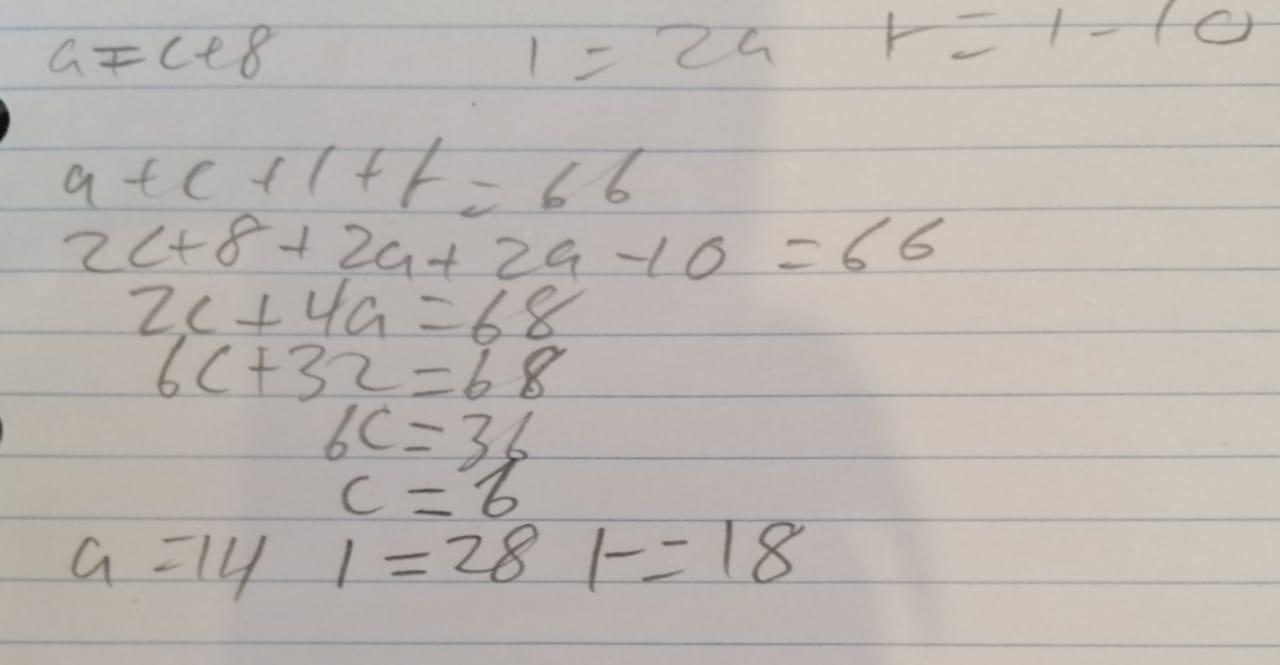 a=c+8 l=2a t=l-10
a+c+l+t=66
2c+8+2a+2a-10=66
2c+4a=68
6c+32=68
6c=36
c=6
a=14 l=28 t=18